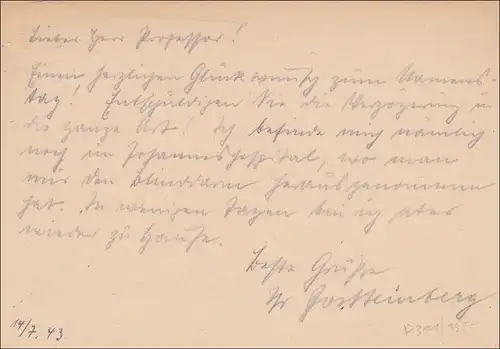 Lieber Herr Professor!
Einen herzlichen Glückwunsch zum Namens-
tag! Entschuldigen Sie die Verzögerung u.
die ganze Art! Ich befinde mich nämlich
noch im Johannesspital, wo man
mir den Blinddarm herausgenommen
hat. In wenigen Tagen bin ich aber
wieder zu Hause.
Beste Grüße
Ihr
14/7.43